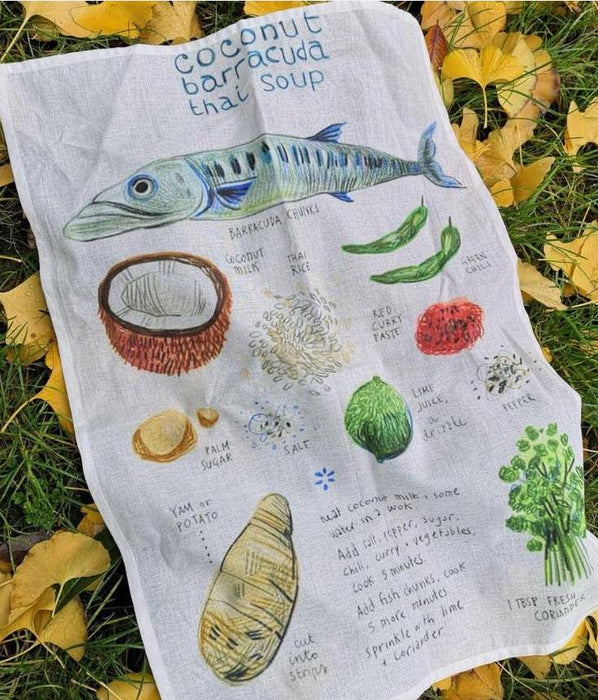 coconut
barracuda
thai soup
BARRACUDA CHUNKS
COCONUT
MILK
THAI
RICE
GREEN
CHILI
RED
CURRY
PASTE
PEPPER
LIME
JUICE,
a
drizzle
PALM
SUGAR
SALT
YAM or
POTATO
cut
into
strips
heat coconut milk + some
water in a wok.
Add salt, pepper, sugar,
chili, curry + vegetables.
cook 5 minutes.
Add fish chunks, cook
5 more minutes.
Sprinkle with lime
+ coriander.
1 TBSP FRESH
CORIANDER